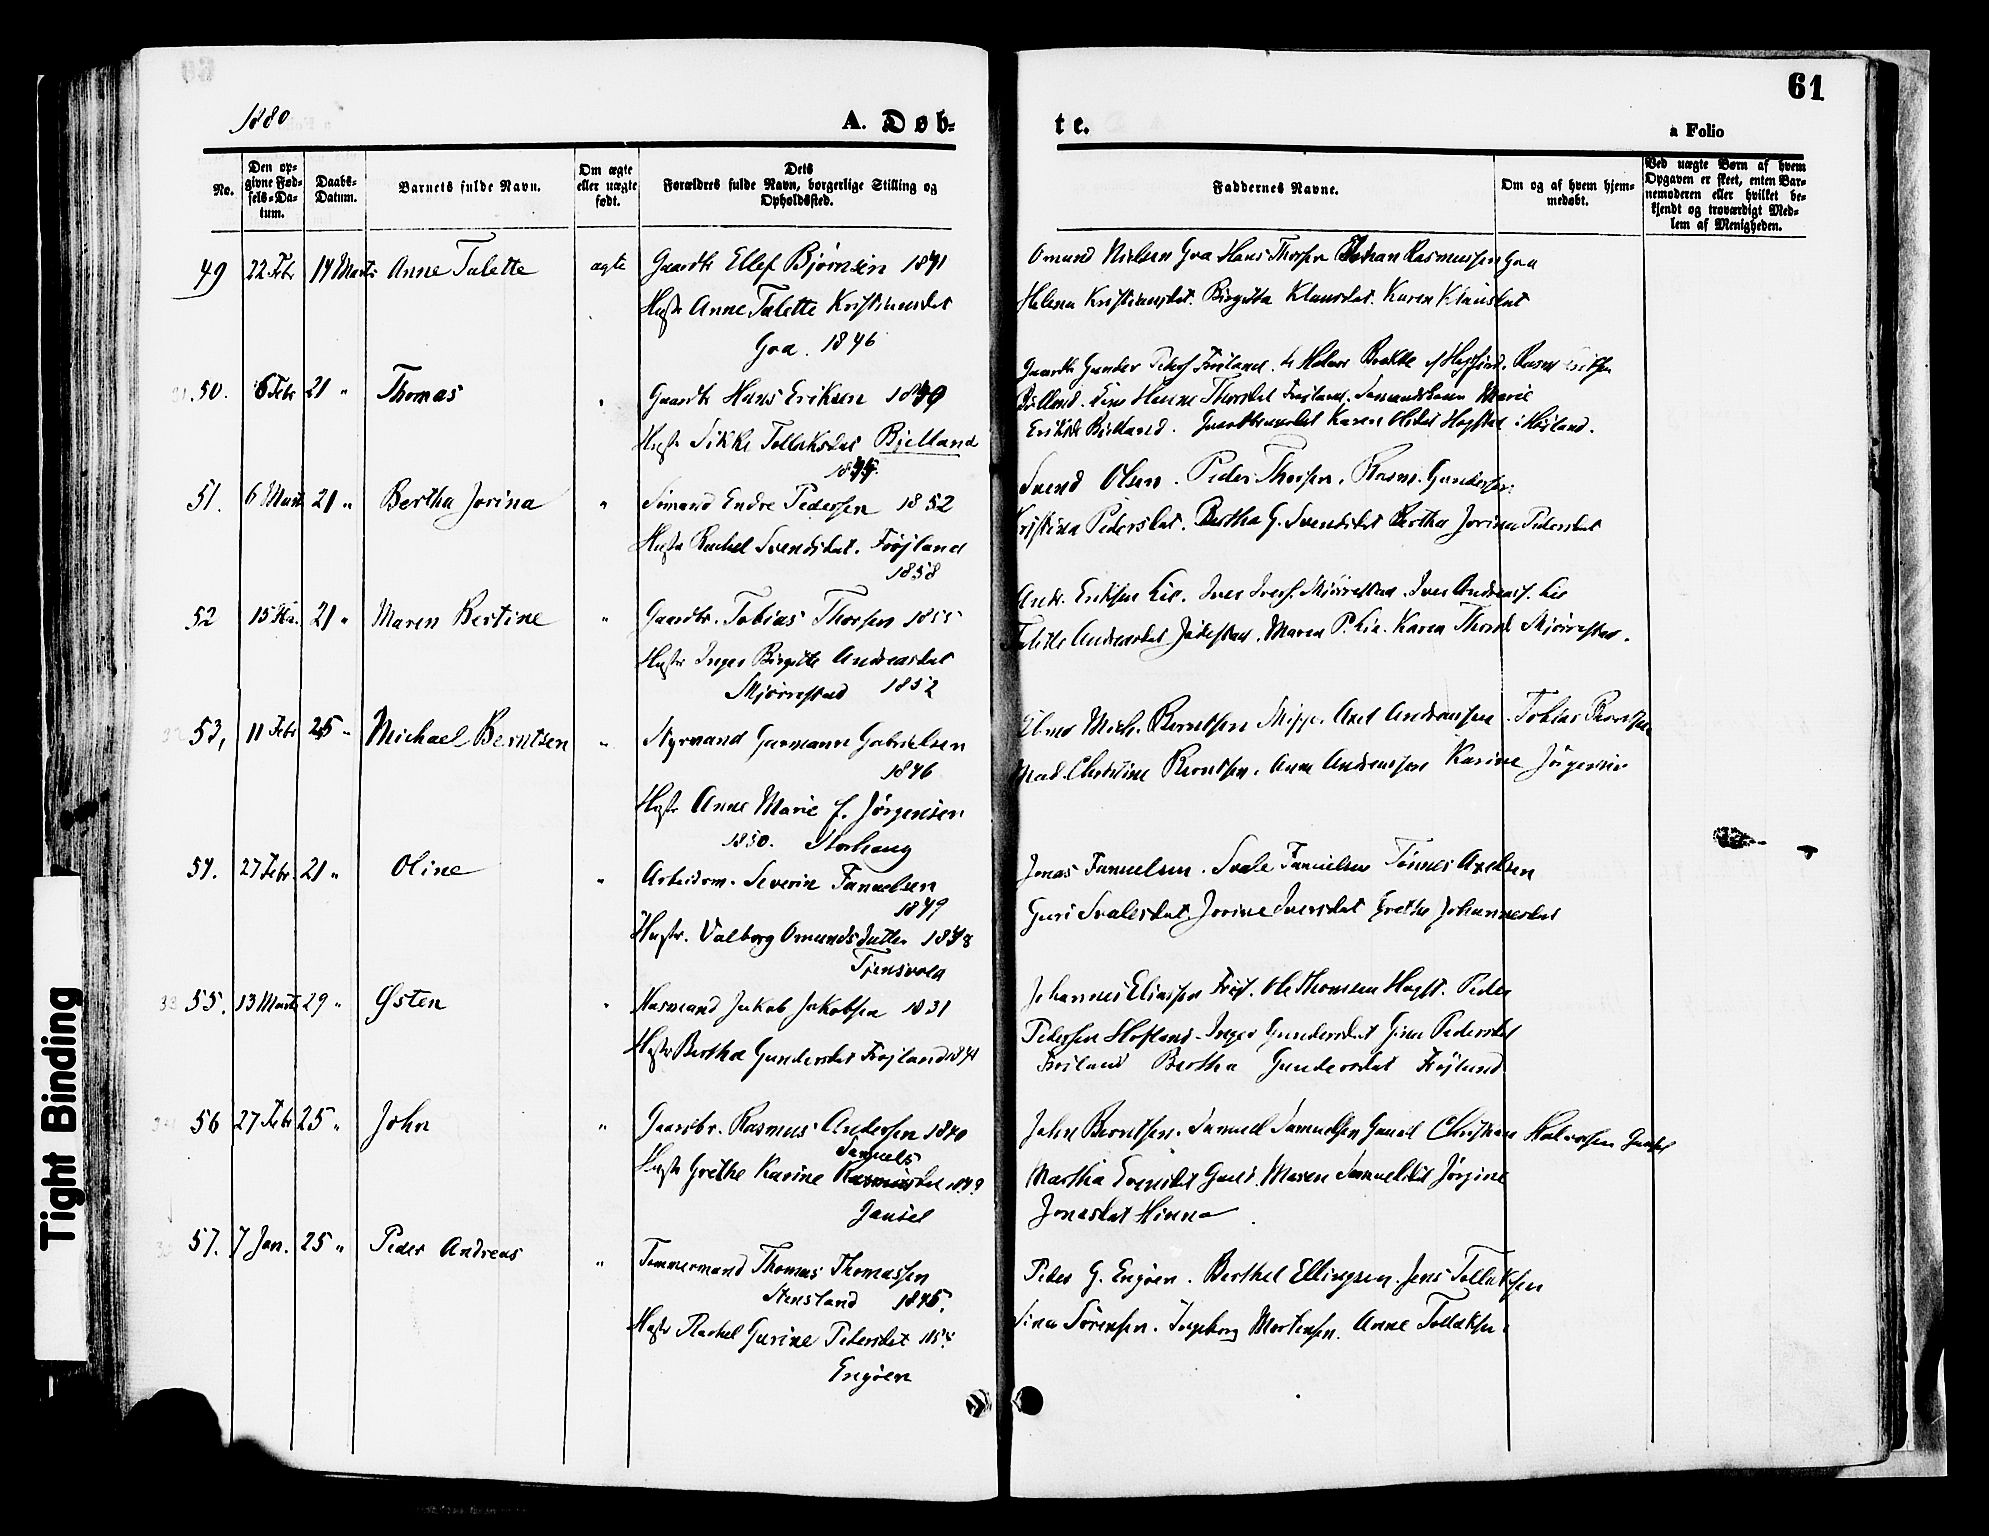 61
1880
A. Døb-
te.
a Folio
No.
Den op-
givne Fød-
sels-Da-
tum.
Daabs-
Datum.
Barnets fulde Navn.
Om ægte
eller uægte
født.
Dets
Forældres fulde Navn, borgerlige Stilling og
Opholdssted.
Faddernes Navne.
Om og af hvem hjem-
medøbt.
Ved uægte Børn af hvem
Opgaven er skeet, enten Bar-
nemoderen eller hvilket be-
kjendt og troværdigt Med-
lem af Menigheden.
49 22 Febr 14 Marts Anne Talette ægte Gaardbr Ellef Bjørnsen 1841
Hustr Anne Talette Kristiansdat
Goa. 1846
Omund Nielsen Goa Hans Thorsen Johan Rasmussen Goa
Helena Kristiansdat. Birgitta Klausdat. Karen Klausdat
50. 6 Febr 21 " Thomas " Gaardbr Hans Eriksen 1849
Hustr Sikke Tollaksdat Bjelland
Gaardbr Gunder Peders Frøiland.
Eriksd Bjelland. Karen Olsdat Høyland.
51. 6 Marts 21 " Bertha Jorina " Sømand Endre Pedersen 1852
Hustr Rachel Svendsdat. Frøjland
1858
Svend Olsen. Peder Thorsen. Rasm. Gundersen.
Kristina Pedersdat. Bertha G. Svendsdat Bertha Jorina Pedersdat
52 15 21 " Maren Bertine " Gaardbr. Tobias Thorsen 1855
Hustr Inger Birgitte Andreasdat
Skjørrestad 1852
Andr. Eriksen Lie. Iver Skjørrestad. Iver Andreass. Lie
Talette Andreasdat Jåttestad. Maren P. Lie. Karen Thorsd Skjørrestad.
53, 11 Febr 25 " Michael Berntsen " Styrmand Garmann Gabrielsen
1846
Hustr Anne Marie f. Jørgensen
1850. Storhaug
Mich. Berntsen Axel Andreassen Tobias Thorsen
Mad. Christine Berntsen. Anne Andreassen Karine Jörgensen
54. 27 Febr. 21 " Oline " Arbeidsm. Severin Fanuelsen
1849
Hustr. Valborg Omundsdatter 1848
Tjensvold
Jonas Fanuelsen. Svale Fanuelsen Tönnes Axelsen
Guri Svalesdat Jorine Iversdat Grethe Johannesdat
55. 13 Marts 29 " Østen " Husmand Jakob Jakobsen 1831
Hustr Bertha Gundersdat Frøjland 1841
Johannes Eliassen Frøil. Ole Thomsen Peder
Pedersen Inger Gundersdat Gina Pedersdat
Frøiland Bertha Gundersdat Frøjland
56 27 Febr 25 " John " Gaardbr. Rasmus Andersen 1840
Samuels
Hustr Grethe Karine Rasmusdat 1849
Gausel
John Berntsen. Samuel Samuelsen Gausel Christian Halvorsen Gausel
Martha Svensdat Gausel. Maren Samuelsdat Jørgine
Jonasdat Hinna
57. 7 Jan. 25 " Peder Andreas " Tømmermand Thomas Thomassen
Stensland 1845.
Hustr Rachel Gurine Pedersdat
Engøen
Peder G. Engøen. Berthel Ellingsen. Jens Tollaksen
Sina Sørensen. Ingeborg Mortensen. Anne Tollaksen
Tight Binding